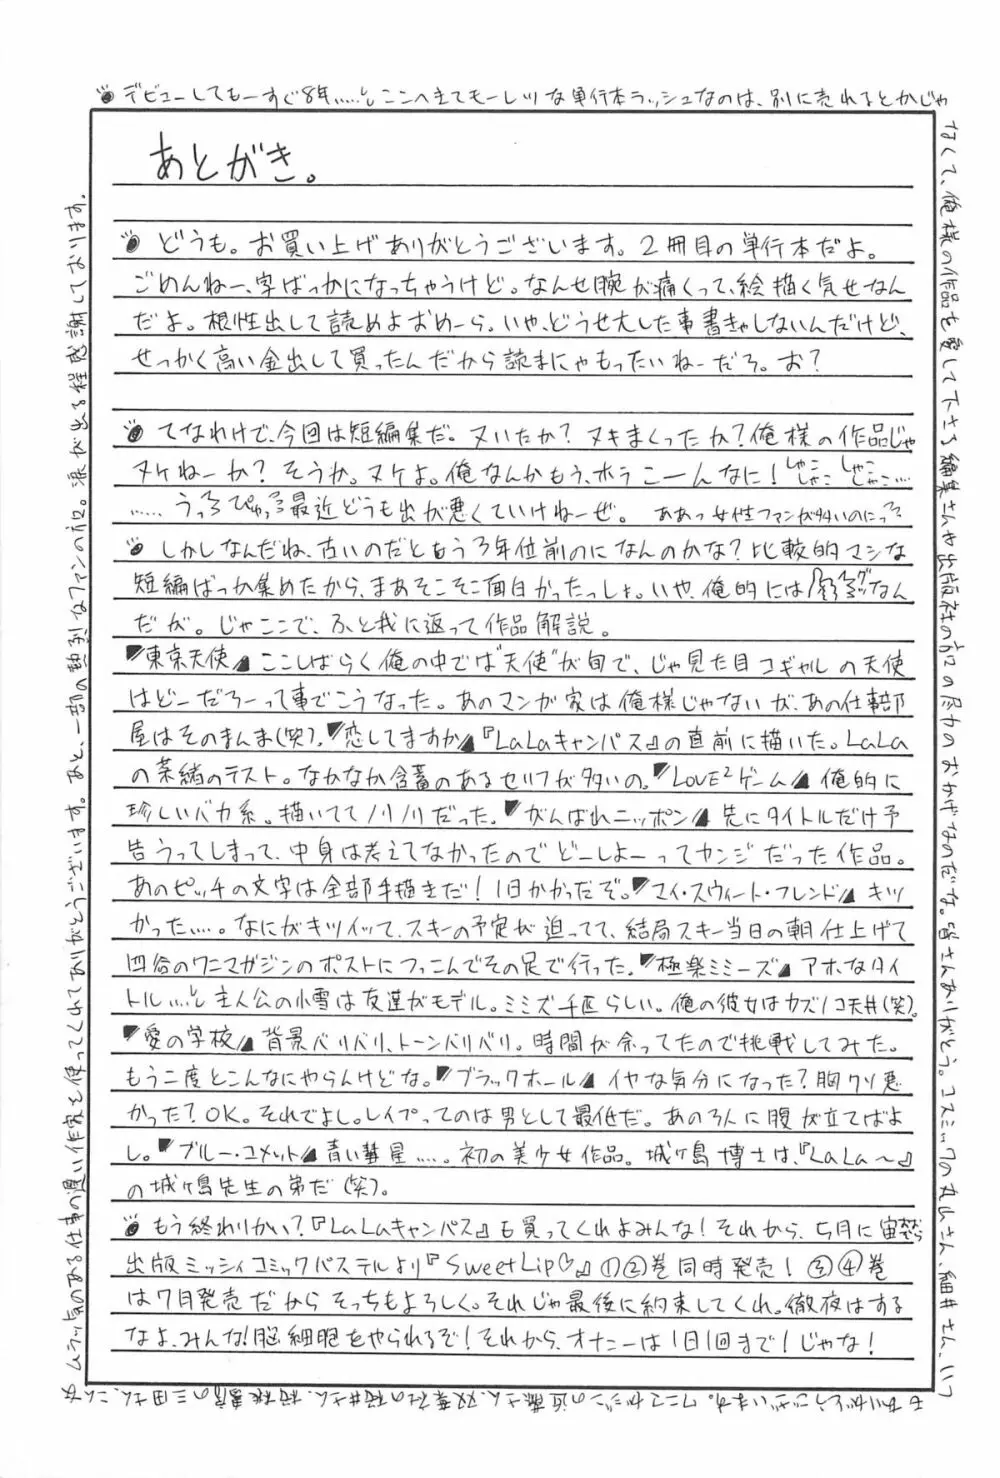 デビューしてもーすぐ8年……。ここへきてモーレツな単行本ラッシュなのは、別に売れるとかじゃ
なくて、俺様の作品を愛して下さる編集さんや出版社の方々の尽力のおかげなのだな。皆さんありがとう。コスミックの丸山さん、細井さん、いつ
もありがとうございます。ワニマガジンの近藤さん、双葉社の桜井さん、桜桃書房の三田さん、こんな
ムラッ気のある仕事の遅い作家を使ってくれてありがとうございます。あと、一部の熱烈なファンの方々。涙が出る程感謝しております。
あとがき。
どうも。お買い上げありがとうございます。2冊目の単行本だよ。
ごめんねー、字ばっかになっちゃうけど。なんせ腕が痛くって、絵描く気せなん
だよ。根性出して読めよおめーら。いや、どうせ大した事書きゃしないんだけど、
せっかく高い金出して買ったんだから読まにゃもったいねーだろ。お?
てなわけで、今回は短編集だ。ヌいたか?ヌキまくったか?俺様の作品じゃ
ヌケねーか?そうか。ヌケよ。俺なんかもう、ホラこーんなに!しゃこしゃこ しゃこしゃこ…
……うっ ぴゅっ 最近どうも出が悪くていけねーぜ。 ああっ女性ファンが多いのにっ
しかしなんだね、古いのだともう3年位前のになんのかな?比較的マシな
短編ばっか集めたから、まあそこそこ面白かったっしょ。いや、俺的には なん
だが。じゃここで、ふと我に返って作品解説。
『東京天使』ここしばらく俺の中では"天使"が旬で、じゃ見た目コギャルの天使
はどーだろーって事でこうなった。あのマンガ家は俺様じゃないが、あの仕事部
屋はそのまんま(笑)。『恋してますか』『LaLaキャンパス』の直前に描いた。LaLa
の茶緒のテスト。なかなか含蓄のあるセリフが多いの。『LOVE²ゲーム』俺的に
珍しいバカ系。描いててノリノリだった。『がんばれニッポン』先にタイトルだけ予
告うってしまって、中身は考えてなかったのでどーしよーってカンジだった作品。
あのピッチの文字は全部手描きだ!1日かかったぞ。『マイ・スウィート・フレンド』キツ
かった…。なにがキツイッて、スキーの予定が迫ってて、結局スキー当日の朝仕上げて
四谷のワニマガジンのポストにつっこんでその足で行った。『極楽ミミーズ』アホなタイ
トル…。主人公の小雪は友達がモデル。ミミズ千匹らしい。俺の彼女はカズノコ天井(笑)。
『愛の学校』背景バリバリ、トーンバリバリ。時間が余ってたので挑戦してみた。
もう二度とこんなにやらんけどな。『ブラックホール』イヤな気分になった?胸クソ悪
かった?OK。それでよし。レイプってのは男として最低だ。あの3人に腹が立てばよ
し。『ブルー・コメット』青い彗星…。初の美少女作品。城ヶ島博士は、『LaLa〜』
の城ヶ島先生の弟だ(笑)。
もう終わりかい?『LaLaキャンパス』も買ってくれよみんな!それから、5月に宙
出版ミッシィコミックパステルより『Sweet Lip♡』①②巻同時発売!③④巻
は7月発売だからそっちもよろしく。それじゃ最後に約束してくれ。徹夜はする
なよ、みんな!脳細胞をやられるぞ!それから、オナニーは1日1回まで!じゃな!